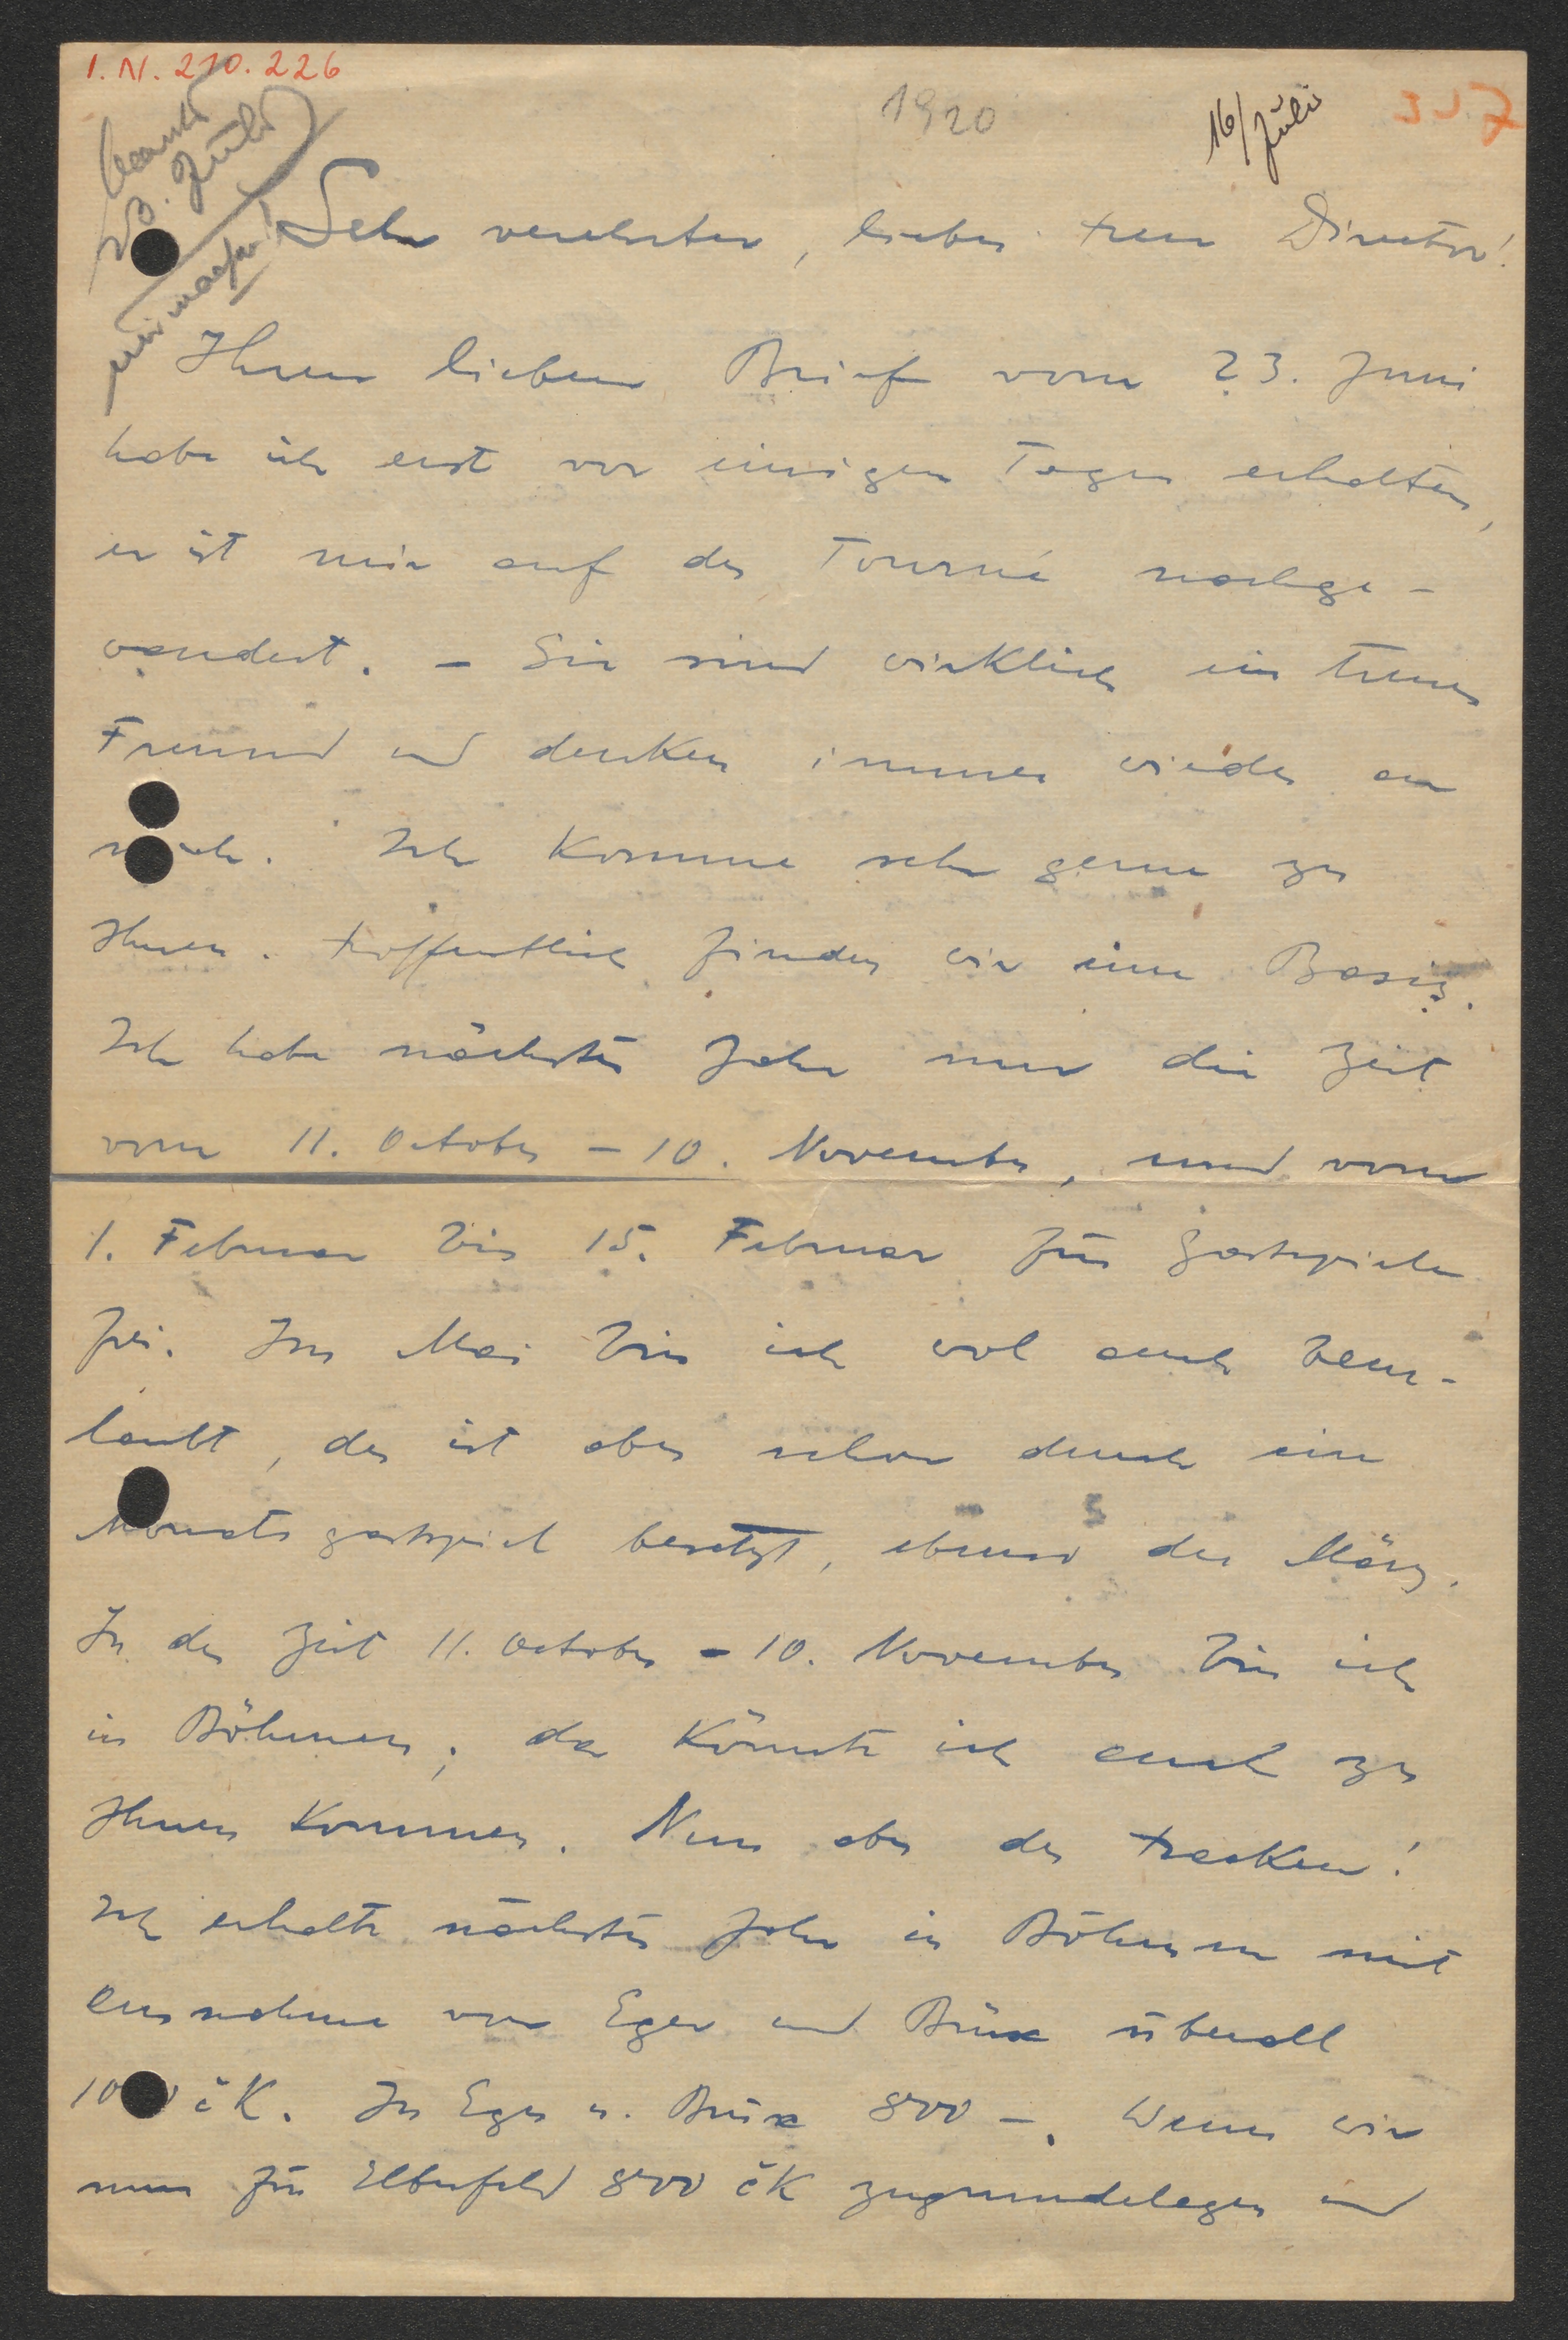 I. N. 210.226
1920
16/Juli
beantw
23. Juli
Sehr verehrter, lieber Herr Director!
Ihren lieben Brief vom 23. Juni
habe ich erst vor einigen Tagen erhalten,
er ist mir auf der Tourné nachge-
wandert. – Sie sind wirklich ein treuer
Freund und denken immer wieder an
mich. Ich komme sehr gerne zu
Ihnen. Hoffentlich finden wir eine Basis.
Ich habe nächstes Jahr nur die Zeit
vom 11. October – 10. November, und vom
1. Februar bis 15. Februar für Gastspiele
frei. Im Mai bin ich wol auch beur-
laubt, der ist aber schon durch ein
Monatsgastspiel besetzt, ebenso der März.
In der Zeit 11. October – 10. November bin ich
in Böhmen, da könnte ich auch zu
Ihnen kommen. Nun aber der Hacken!
Ich erhalte nächstes Jahr in Böhmen mit
Ausnahme von Eger und Brüx überall
1000 čK. In Eger u. Brüx 800 –. Wenn wir
nun für Elberfeld 800 čK zugrundelegen und